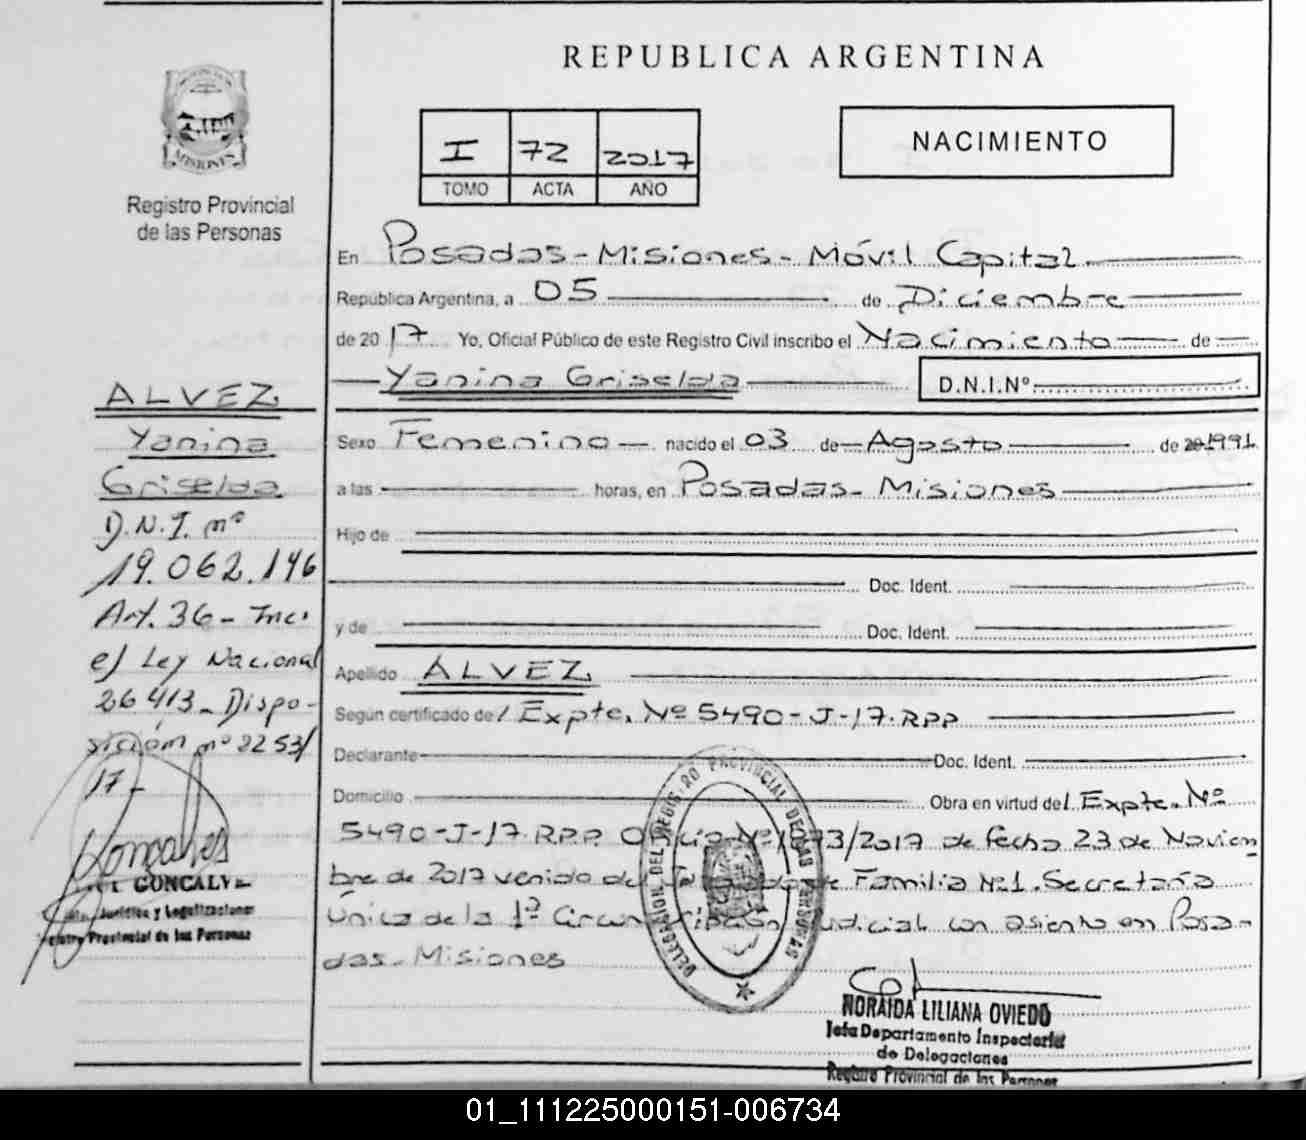 REPUBLICA ARGENTINA
MISIONES
Registro Provincial
de las Personas
I 72 2017
TOMO ACTA AÑO
NACIMIENTO
En Posadas - Misiones - Móvil Capital
República Argentina, a 05 de Diciembre
de 2017 Yo, Oficial Público de este Registro Civil inscribo el Nacimiento de
Yanina Griselda D.N.I.Nº
Sexo Femenino nacido el 03 de Agosto de 1991
a las horas, en Posadas - Misiones
Hijo de
Doc. Ident.
y de Doc. Ident.
Apellido ALVEZ
Según certificado de/ Expte. Nº 5490-J-17. RPP
Declarante Doc. Ident.
Domicilio Obra en virtud de/ Expte. Nº
5490-J-17. RPP. Oficio Nº /2017 de fecha 23 de Noviem
bre de 2017 venido del Juzgado de Familia Nº1. Secretaría
Única de la 1ª Circunscripción Judicial con asiento en Posa-
das - Misiones
ALVEZ
Yanina
Griselda
D.N.I. nº
19.062.146
Art. 36 - Inc.
e) Ley Nacional
26413 - Dispo-
sición nº 2253/
17 -
GONCALVE
Jurídica y Legalizaciones
Registro Provincial de las Personas
DELEGACION DEL REGISTRO PROVINCIAL DE LAS PERSONAS
NORAIDA LILIANA OVIEDO
Jefa Departamento Inspectoría
de Delegaciones
Registro Provincial de las Personas
01_111225000151-006734